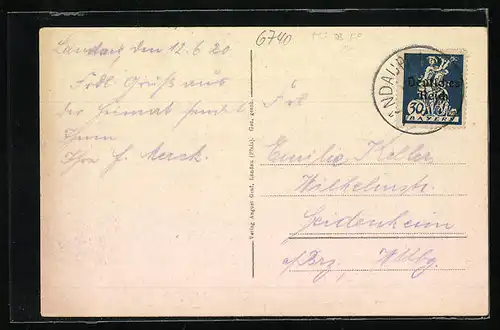 6740
Landau, den 12.6.20
Frdl. Grüße aus
der Heimat sendet
Ihnen
Ihre
Frl.
Emilie Keller
Wilhelmstr.
Heidenheim
a/Brz. Wttbg.
Verlag August Graf, Landau (Pfalz). Ges. gesch.
LANDAU
Deutsches
Reich
30
BAYERN